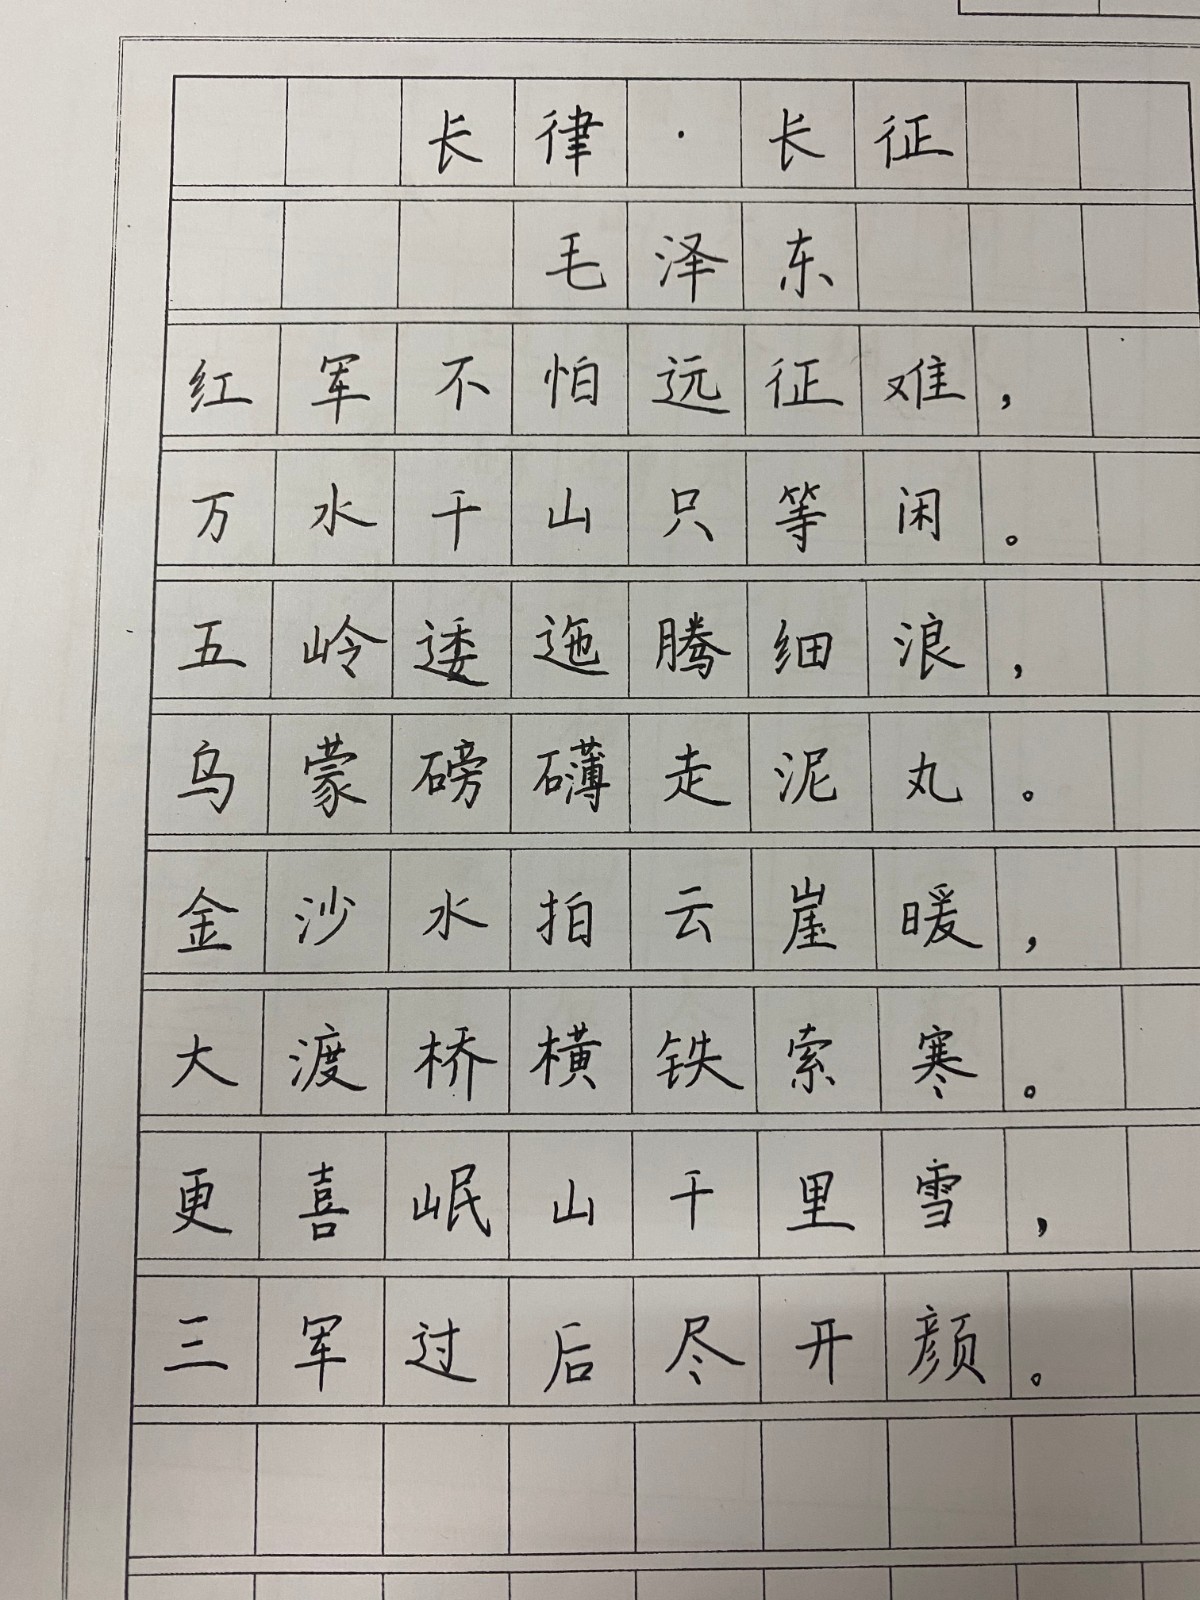 长律·长征
毛泽东
红军不怕远征难，
万水千山只等闲。
五岭逶迤腾细浪，
乌蒙磅礴走泥丸。
金沙水拍云崖暖，
大渡桥横铁索寒。
更喜岷山千里雪，
三军过后尽开颜。